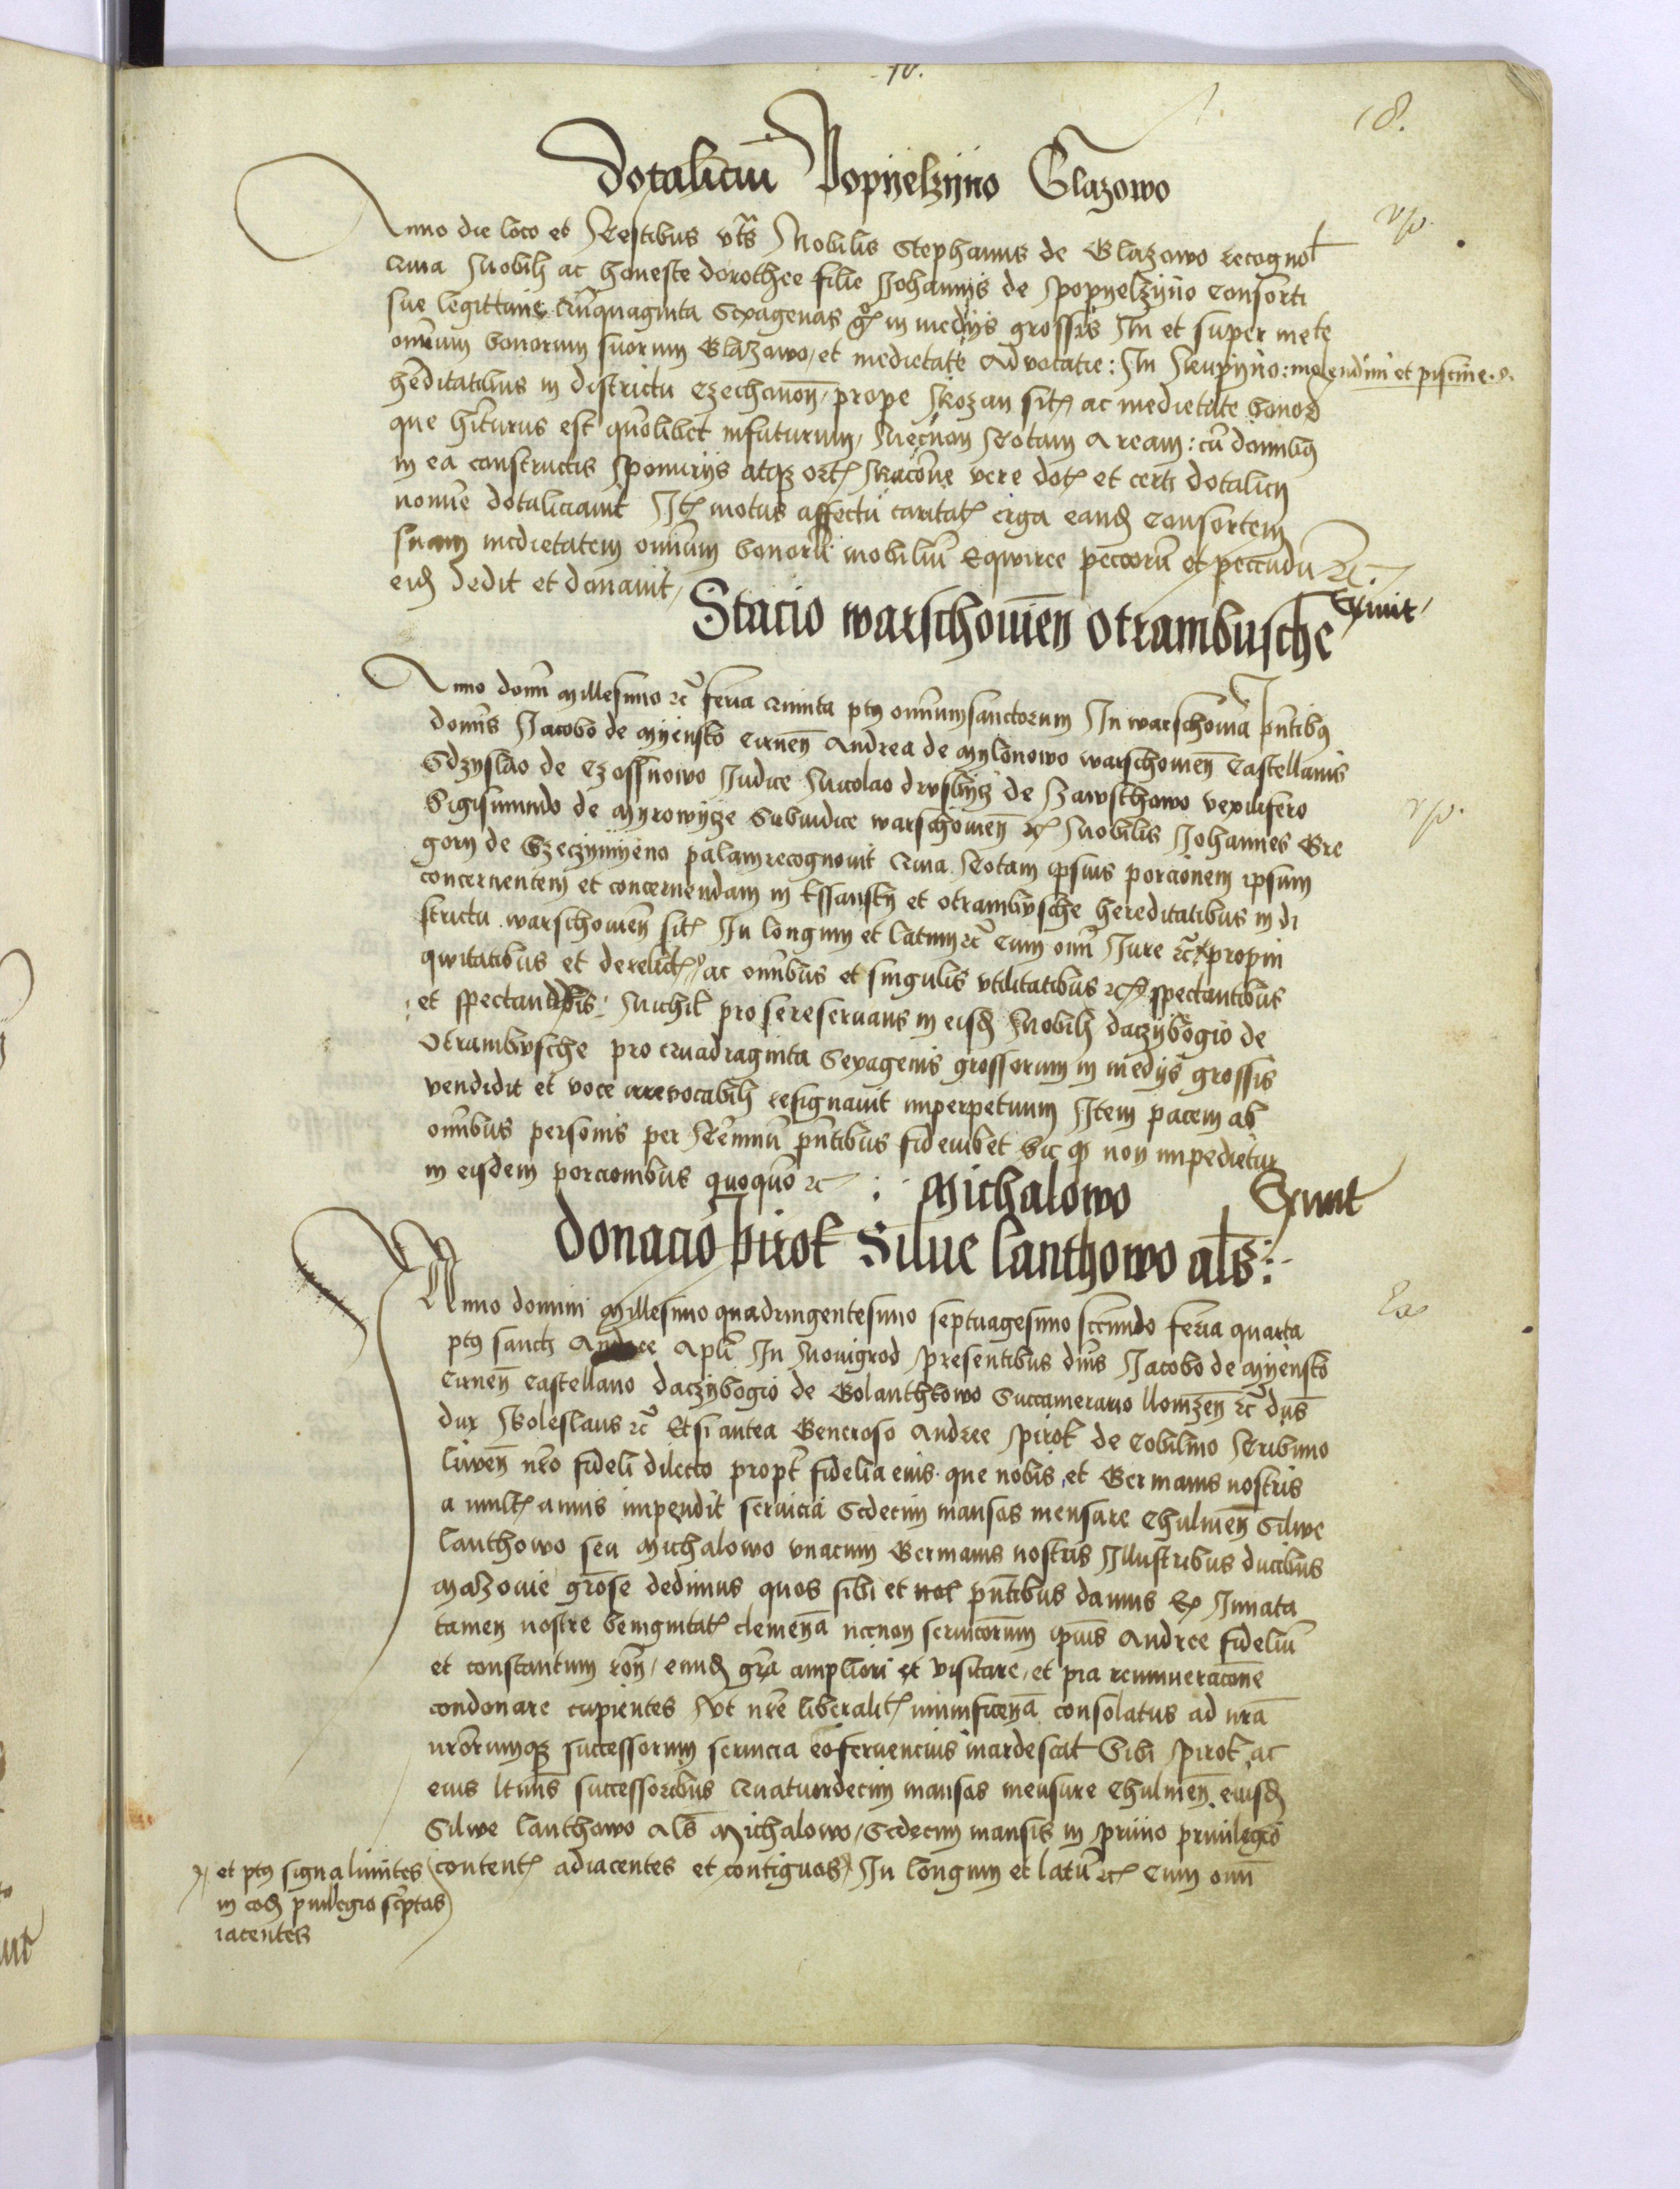 18.
Dotaliciu Popyelzyno Glazowo
Anno die loco et Testibus vts Nobilis Stephanus de Glazowo recognot
Quia Nobili ac honeste dorothee filie Johannis de Popyelzyno Consorti
sue legittime Quinquaginta Sexagenas gr in medys grossis In et super mete
omnium bonorum suorum Glazowo, et medietate Advocatie: In Krupyno: molendini et piscine.
hereditatibus in districtu Czechonon prope Rozan sit ac medietate bonor
que hiturus est quolibet infuturum, Necnon Totam Aream: cu domibus
in ea constructis Pomeriis atque ort Racone vere dot et certi dotalicy
nomine dotaliciavit It motus affectu caritat erga eand Consortem
suam medietatem omnium bonoru mobiliu Equiree peccoru et peccudu etc.
eid dedit et donavit,
Exivit
Stacio warschouien Otrambusche
Anno domi Millesimo etc feria Quinta pt omniumsanctorum In warschouia pntibus
domis Jacobo de Myensko Cirnen Andrea de Mylonowo warschouien Castellanis
Sdzyslao de Czossnowo Judice Nicolao de Zawschowo vexilifero
Sigismundo de Myrowycze Subiudice warschouien etc Nobilis Johannes Gre
gory de palamrecognouit Quia Totam ipsius porcionem ipsum
concernentem et concernendam in et Otrambusche hereditatibus in di
strictu warschouien sit In longum et latum etc Cum omi Jure etc propin
qwitatibus et derelict ac omibus et singulis vtilitatibus etc spectantibus
et spectandis: Nichil pro sereseruans in eisd Nobili daczybogio de
Otrambusche pro Quadraginta Sexagenis grossorum in medys grossis
vendidit et voce irrevocabili resignauit imperpetuum Item pacem ab
omibus personis per Terminu pntibus fideiubet Sic q non impedietur
in eisdem porcionibus quoquo etc
Michalowo Exiuit
Donacio pirot Silue Lanthowo als:
Anno domini Millesimo quadringentesimo septuagesimo secundo feria quarta
pt sancti Andree Apli In Nouigrod presentibus dnis Jacobo de Myensko
Cirnen Castellano daczybogio de Golanthkowo Succamerario llomzen etc dns
dux Boleslaus etc Etsi antea Generoso Andree Pirot de Cobilino Tribuno
liwen nro fideli dilecto propt fidelia eius que nobis et Germanis nostris
a mult annis impendit seruicia Sedecim mansos mensure Chulmen Silwe
lanthowo seu Michalowo vnacum Germanis nostris Illustribus ducibus
Mazouie grose dedimus quos sibi et pntibus damus Ex Innata
tamen nostre benignitat clemena necnon seruicorum ipius Andree fideliu
et constantium ron, eund gra ampliori et visitare, et pia remuneracone
condonare cupientes Vt nre liberalit munificena consolatus ad nra
nrorumque successorum seruicia eoferuencius inardescat Sibi Pirot ac
eius ltimis successoribus Quatuordecim mansos mensure Chulmen eiusd
Silwe lanthowo Als Michalowo, Sedecim mansis in primo priuilegio
content adiacentes et contiguos In longum et latu etc Cum omi
et pt signa limites
in eod priuilegio scptas
iacentes